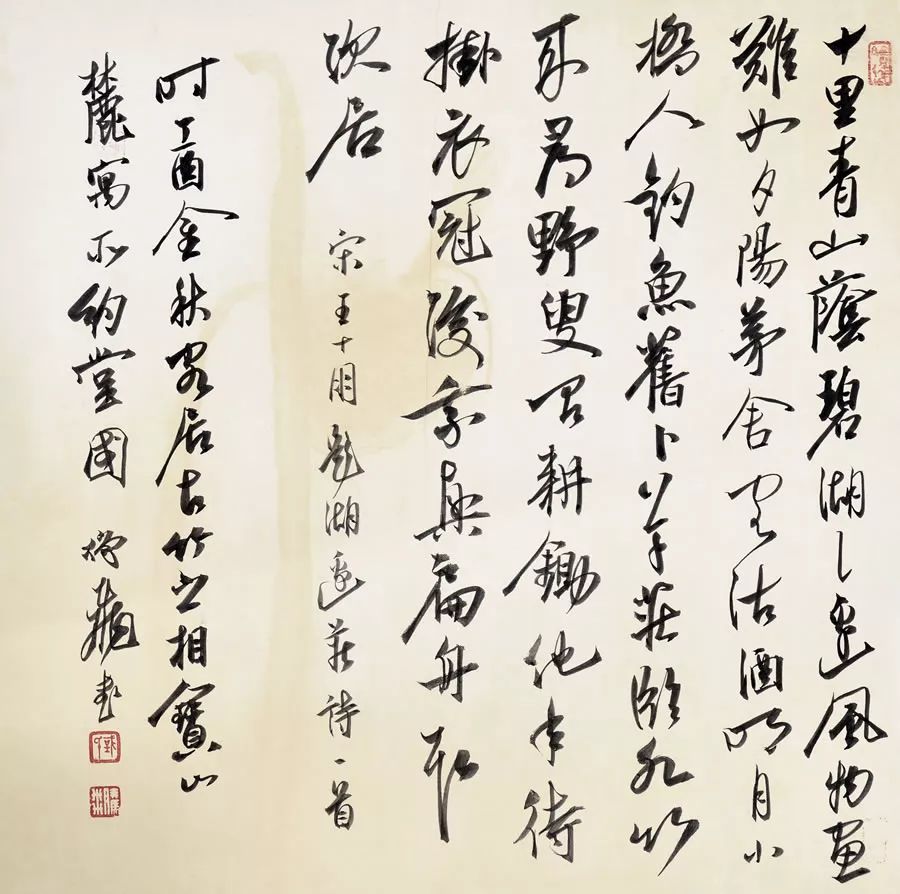 十里青山蔭碧湖〻邊風物畫
難如夕陽茅舍客沽酒明月小
橋人釣魚舊卜草莊臨水竹
來尋野叟問耕鋤他年待
掛衣冠後乘興扁舟取
次居 宋王十朋題湖邊莊詩一首
時丁酉金秋客居古竹之相寶山
麓寓所納堂國 書